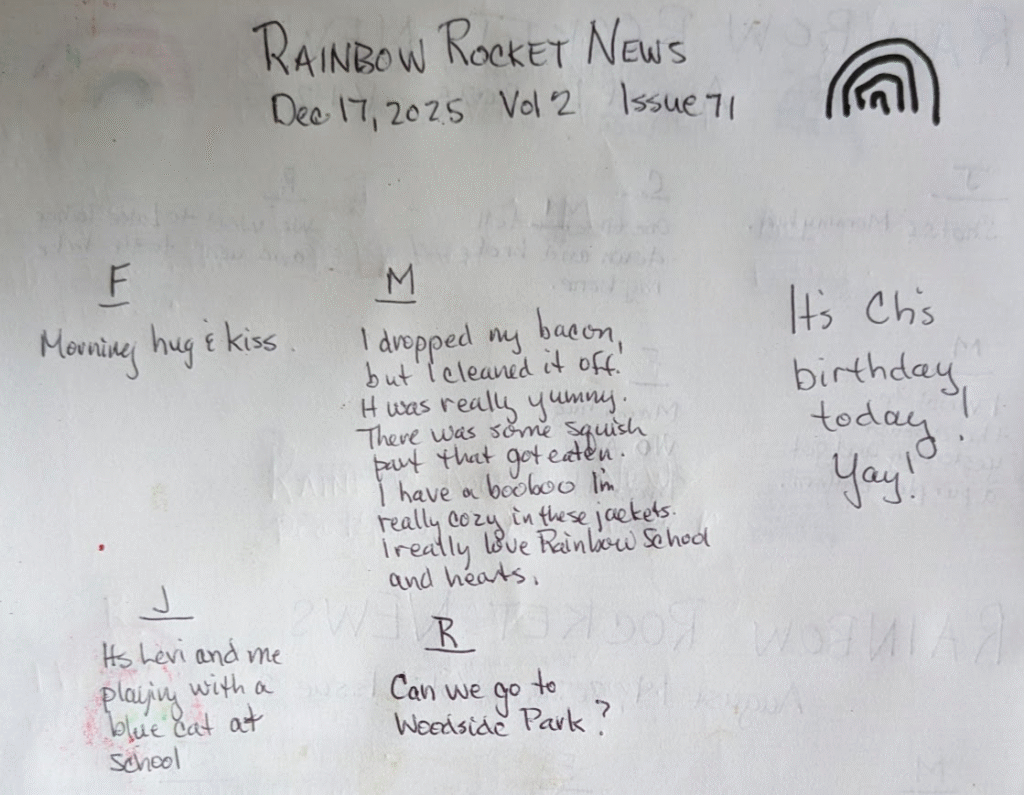 RAINBOW ROCKET NEWS
Dec 17, 2025 Vol 2 Issue 71
F
Morning hug & kiss.
M
I dropped my bacon,
but I cleaned it off.
It was really yummy.
There was some squish
part that got eaten.
I have a booboo I'm
really cozy in these jackets.
I really love Rainbow School
and hearts.
It's Ch's
birthday
today!
Yay!
J
Its Levi and me
playing with a
blue cat at
school
R
Can we go to
Woodside Park?